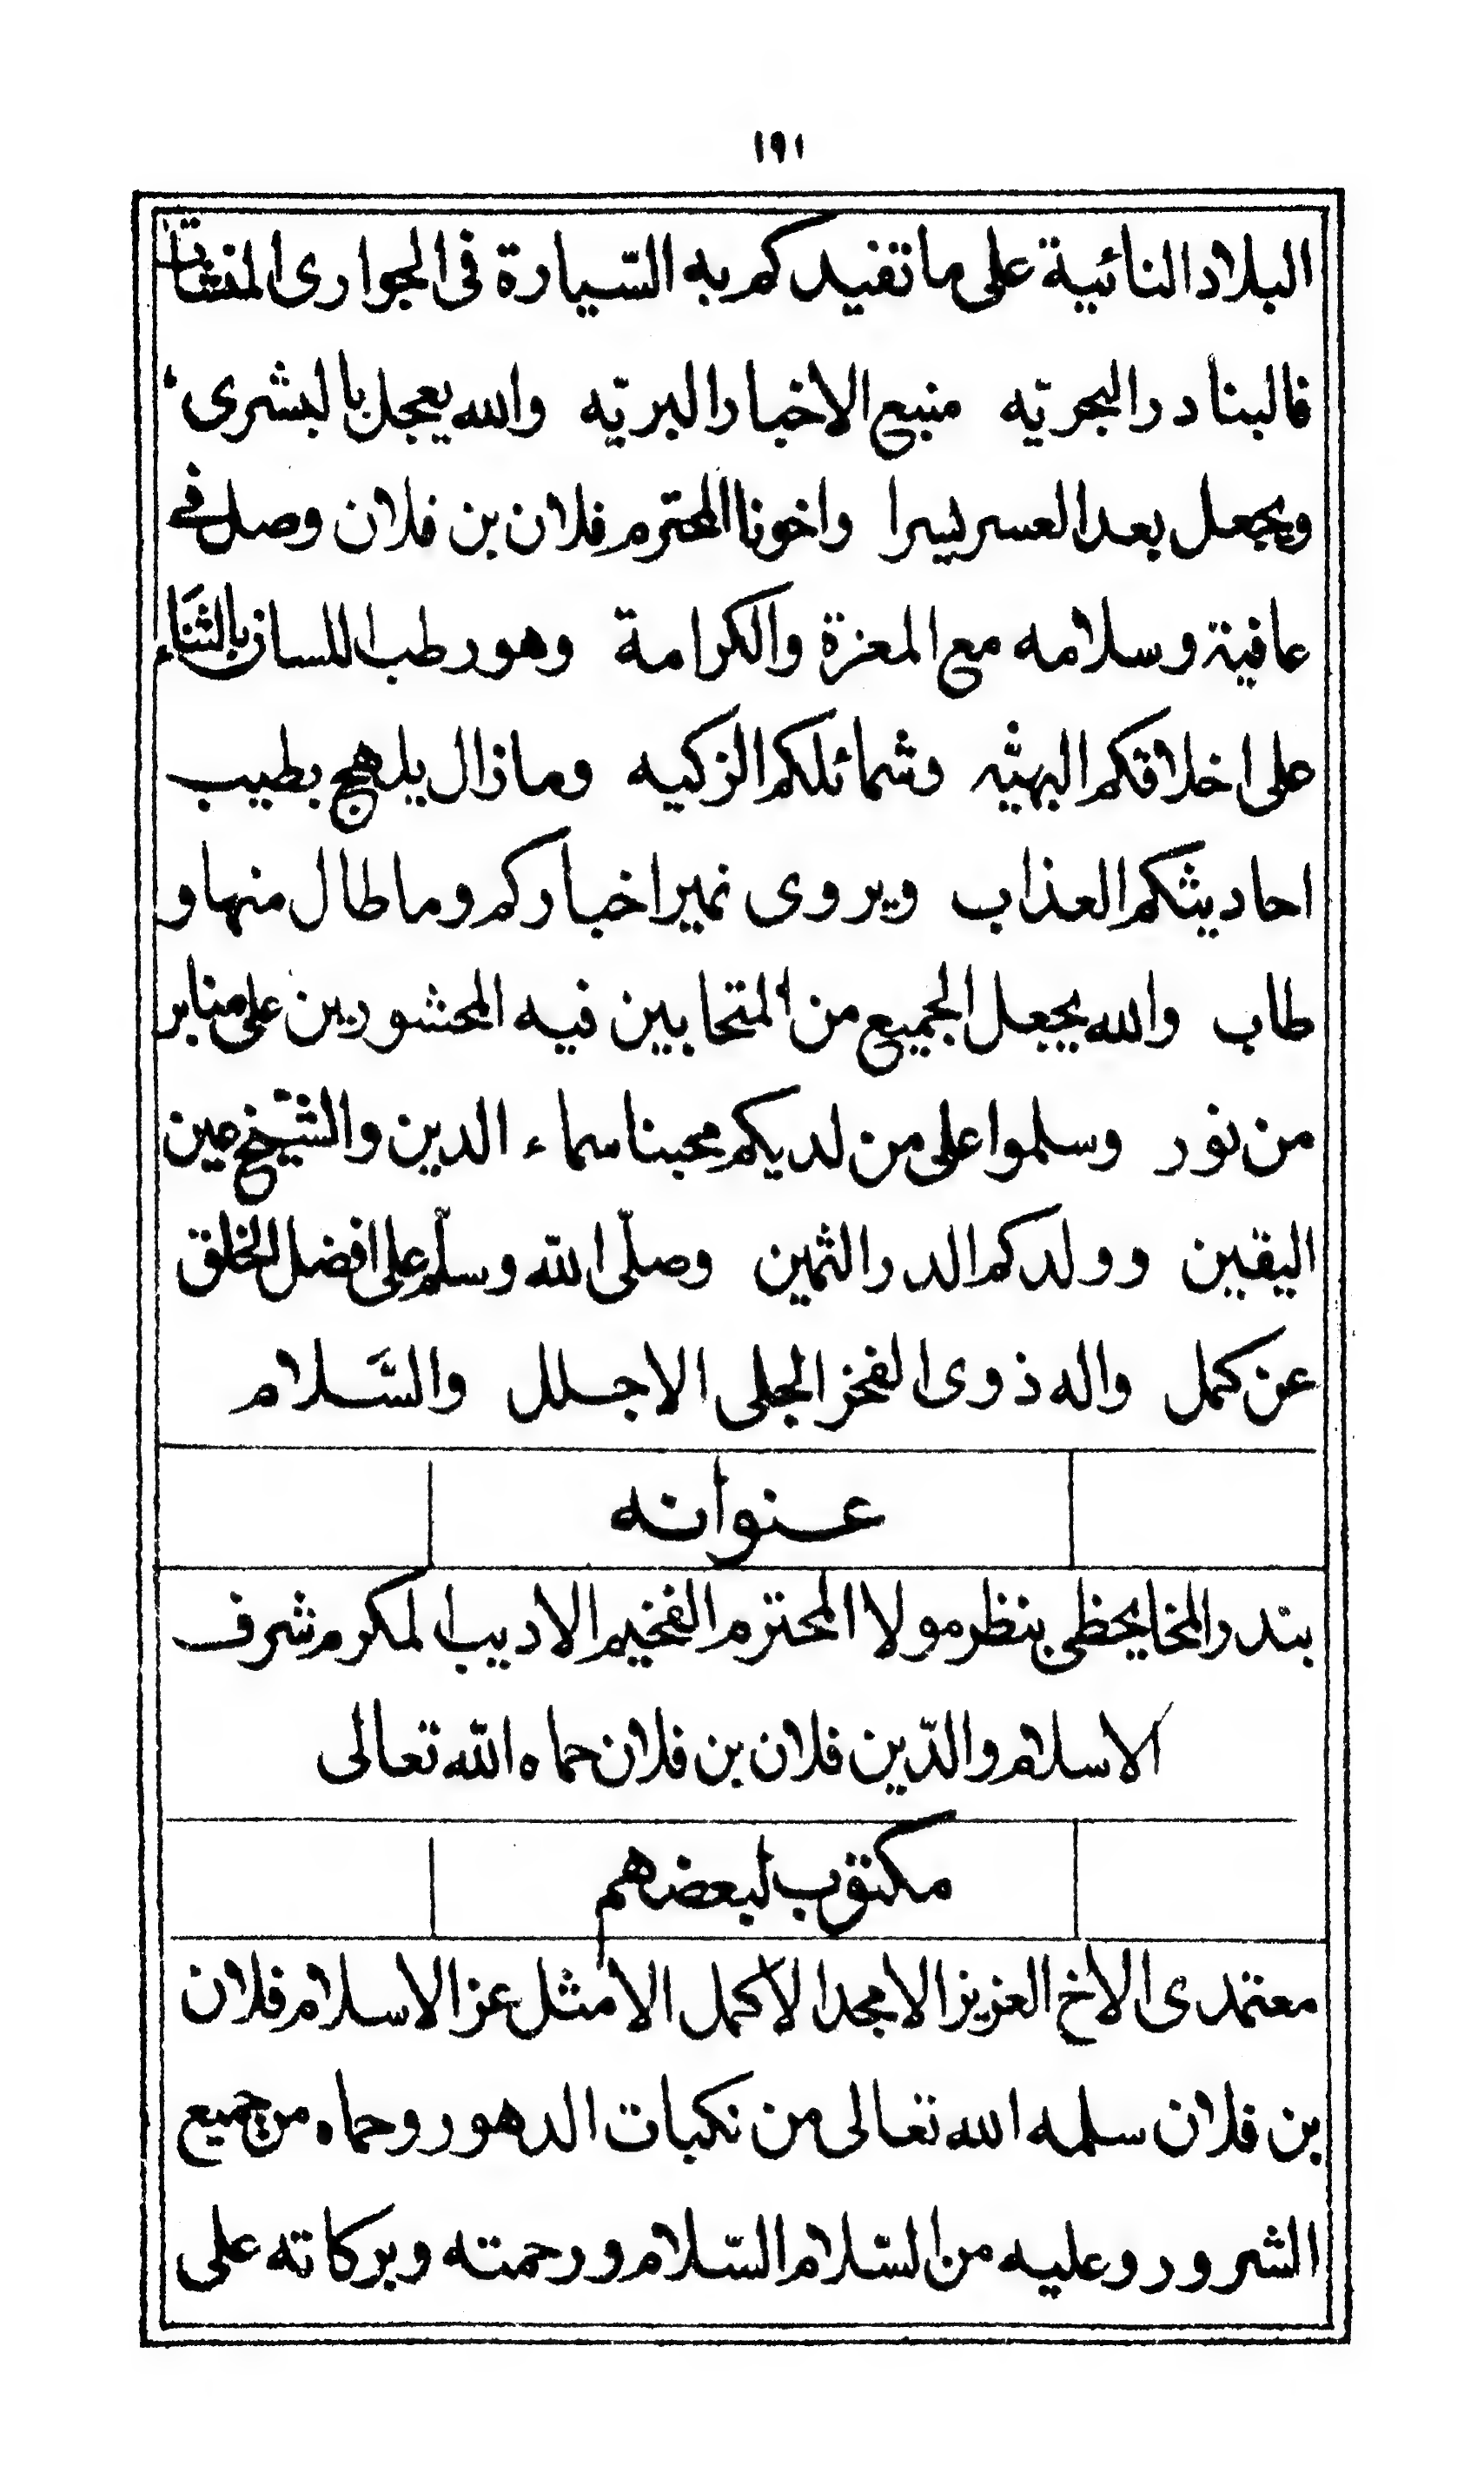 ١٩١
البلاد النائية على ما تفيدكم به السّيارة فى الجوارى المنشات
فالبنادر البحريّه منبع الاخبار البريّه والله يعجل بالبشرى
ويجعل بعد العسر يسرا واخونا المحترم فلان بن فلان وصل فى
عافية وسلامه مع المعزة والكرامة وهو رطب اللسان بالثناء
على اخلاقكم البهيّه وشمائلكم الزكيه وما زال يلهج بطيب
احاديثكم العذاب ويروى نمير اخباركم وما طال منها و
طاب والله يجعل الجميع من المتحابين فيه المحشورين على منابر
من نور وسلموا على من لديكم محبنا سماء الدين والشيخ عين
اليقين وولدكم الدر الثمين وصلّى الله وسلّم على افضل الخلق
عن كمل واله ذوى الفخر الجلى الاجلل والسَّلام
عنوانه
بندر المخا يحظى بنظر مولا المحترم الفخيم الاديب المكرم شرف
الاسلام والدّين فلان بن فلان حماه الله تعالى
مكتوب لبعضهم
معتمدى الأخ العزيز الامجد الاكمل الأمثل عز الاسلام فلان
بن فلان سلمه الله تعالى من نكبات الدهور وحماه من جميع
الشرور وعليه من السّلام السّلام ورحمته وبركاته على